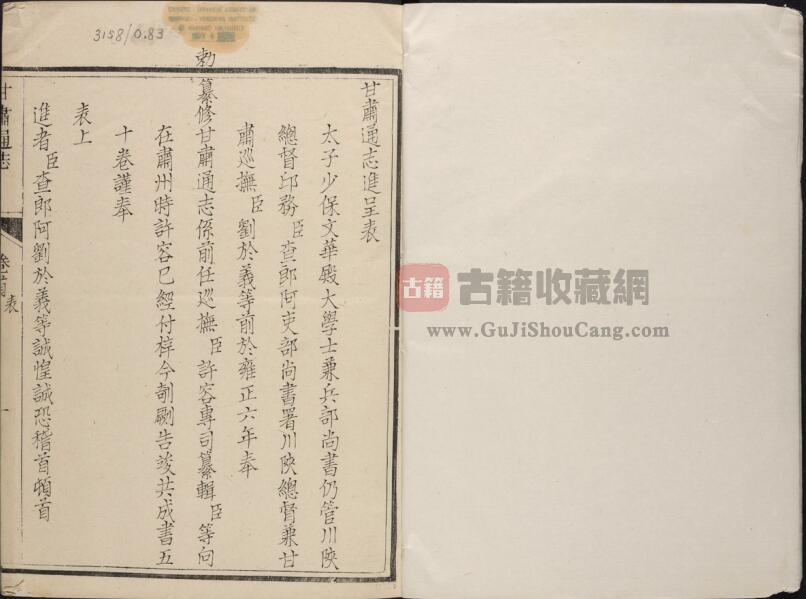 3158/0.83
甘肅通志進呈表
太子少保文華殿大學士兼兵部尚書仍管川陝
總督印務臣查郎阿吏部尚書署川陝總督兼甘
肅巡撫臣劉於義等前於雍正六年奉
勅纂修甘肅通志係前任巡撫臣許容專司纂輯臣等向
在肅州時許容已經付梓今剞劂告竣共成書五
十卷謹奉
表上
進者臣查郎阿劉於義等誠惶誠恐稽首頓首
甘肅通志
表
一
古籍
古籍收藏網
www.GuJiShouCang.com